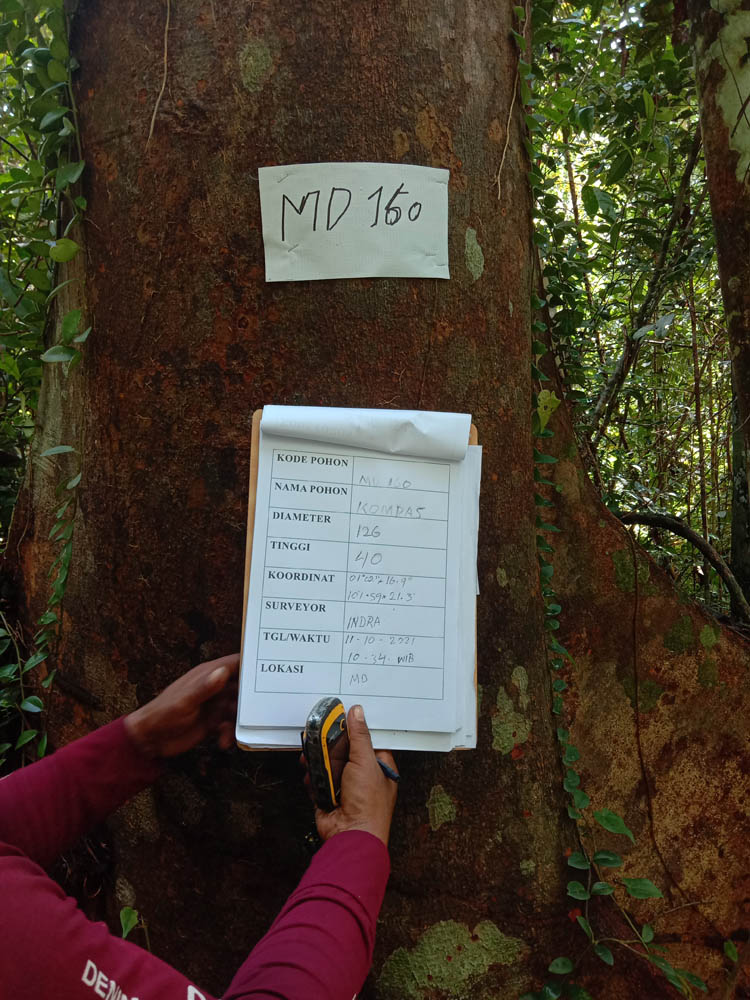 MD 160
KODE POHON MD 160
NAMA POHON KOMPAS
DIAMETER 126
TINGGI 40
KOORDINAT
SURVEYOR INDRA
TGL/WAKTU 11-10-2021
10.34. WIB
LOKASI MD